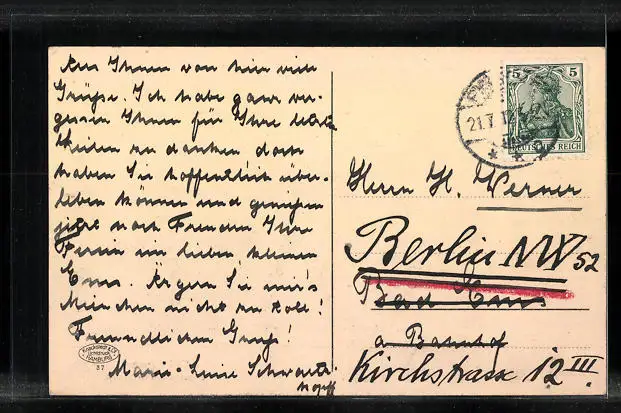 Ihnen von hier viele
Grüße. Ich habe ganz ver-
gessen Ihnen für Ihre letzte
zu danken doch
haben Sie hoffentlich über-
leben können und genießen
jetzt nach Freuden Ihre
Ferien im lieben kleinen
Ems. Ärgern Sie mir's
nicht zu toll!
Freundlichen Gruß!
Marie-Luise
Knackstedt & Co.
Lichtdruck
HAMBURG
37
21.7.12
5 5
DEUTSCHES REICH
Herrn H. Werner
Berlin NW 52
Bad Ems
a Bahnhof
Kirchstrasse 12 III